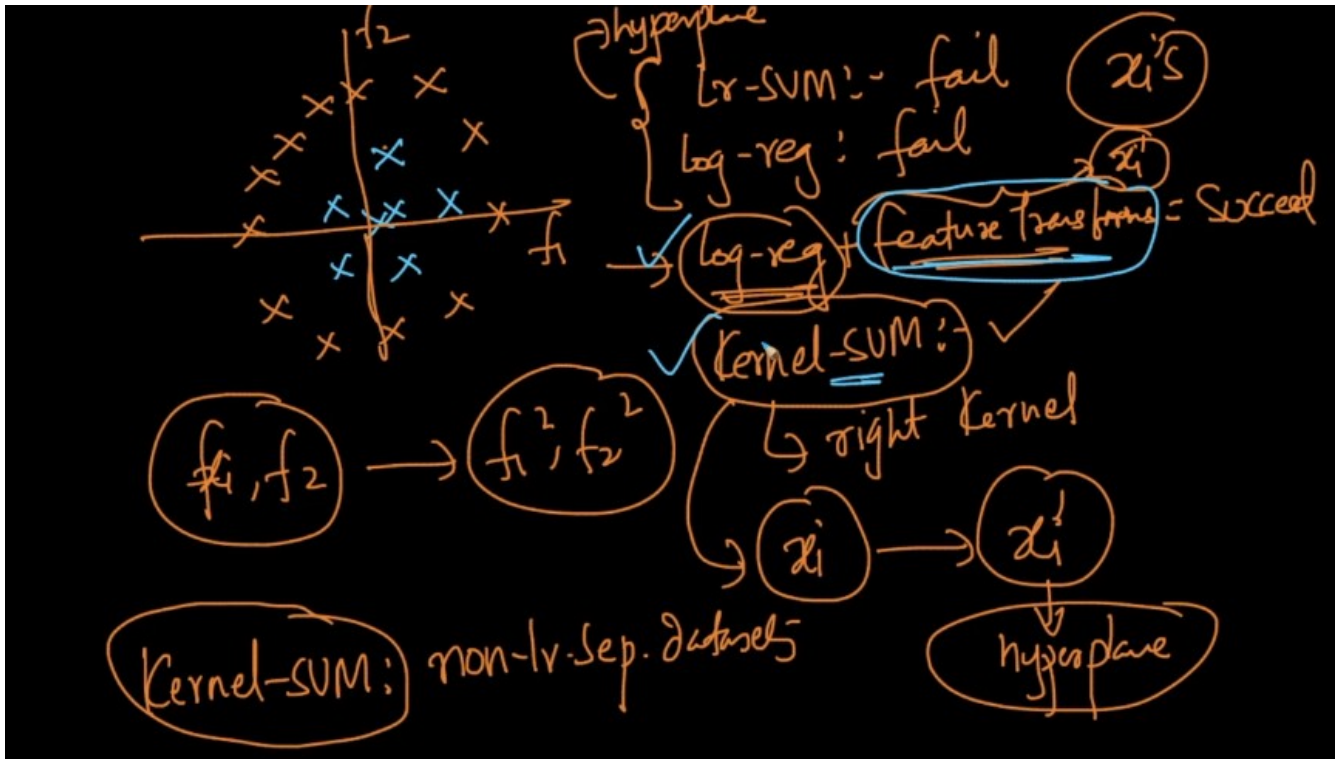 f2
hyperplane
lr-SVM:- fail
log-reg: fail
xi's
xi'
f1
log-reg + feature Transforms = Succeed
Kernel-SVM:-
right Kernel
f1, f2 → f1², f2²
xi → xi'
hyperplane
Kernel-SVM: non-lr.sep. datasets